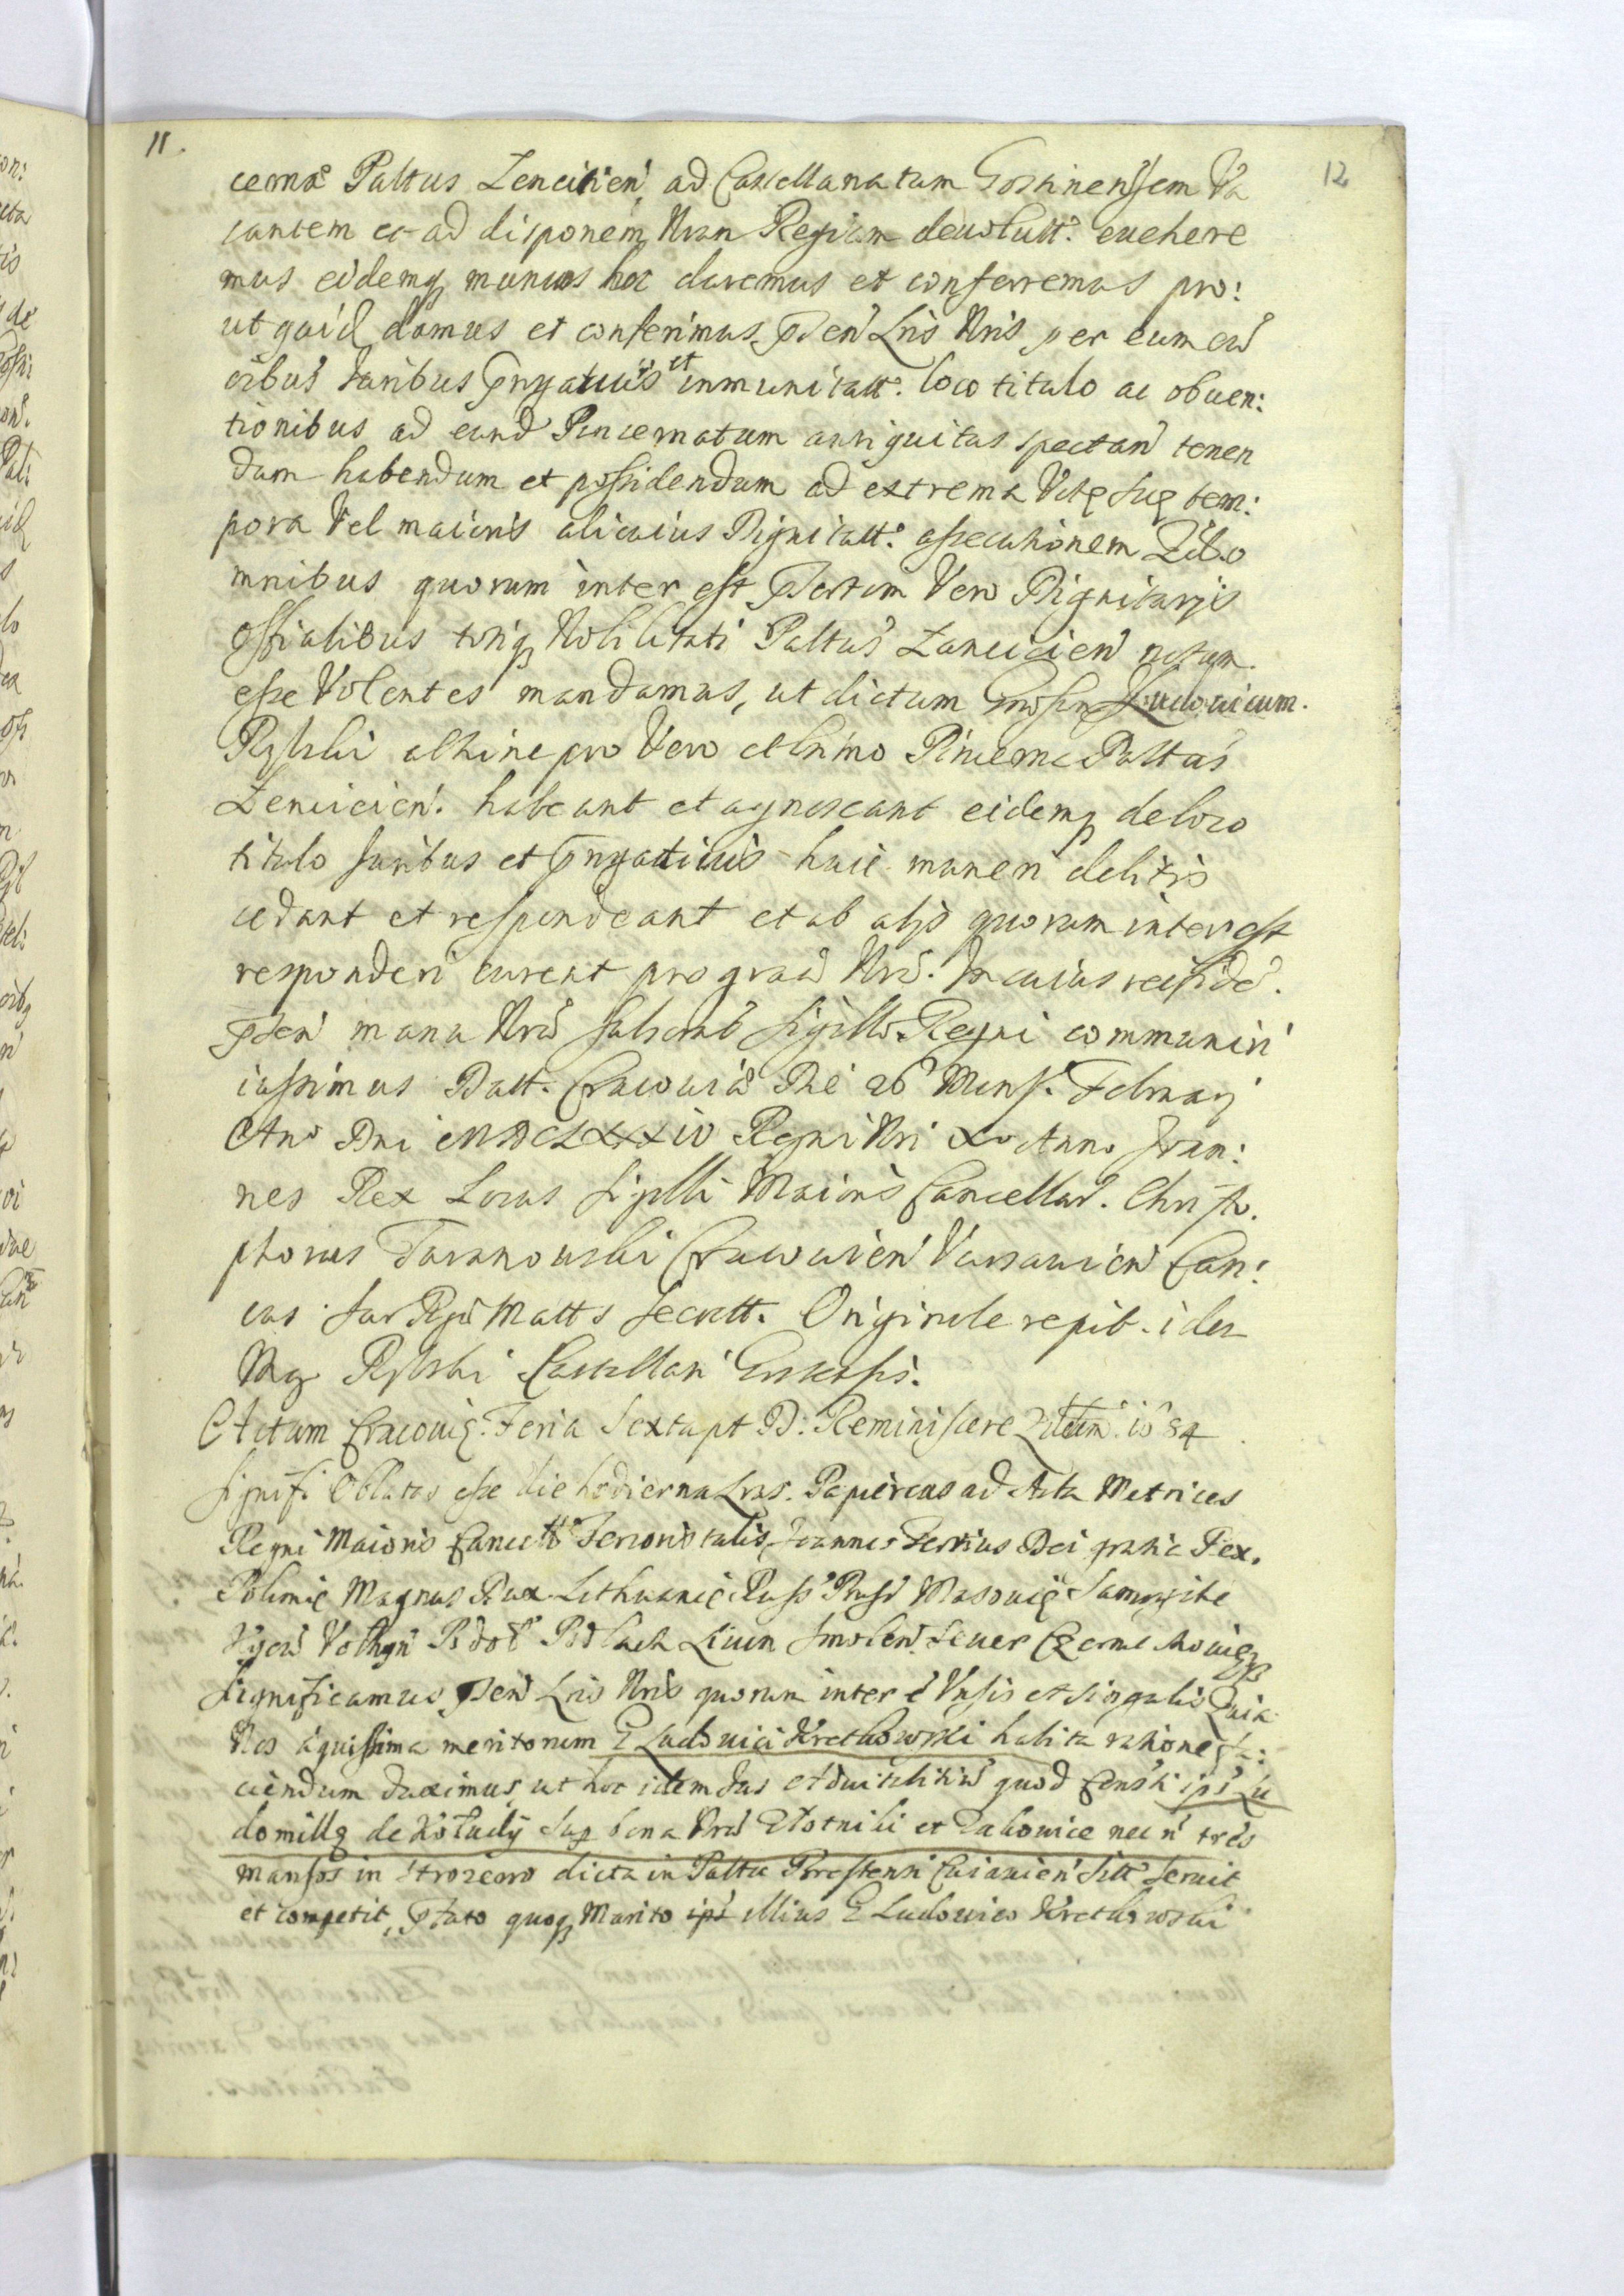 11.
12
cernæ Paltus Lencicien, ad Castellanatum Gostinensem Va
cantem et ad disponem Nran Regiam deuolutt. euehere
mus eidemq munus hoc daremus et conferremus pro:
ut quid damus et conferimus pden Lris Nris per eum cu
oibus iuribus prrgatiuis et inmunitatt. loco titulo ac obuen:
tionibus ad eund Pincernatum antiquitus spectan tenen
dum habendum et possidendum ad extrema Vitę suę tem:
pora Vel maioris alicuius Dignitatt. assecutionem
mnibus quorum inter est psertim Vero Dignitarijs
offialibus totiq Nobilitati Paltus Lancicien notum
esse Volentes mandamus, ut dictum Gnosum Ludouicum.
Rylski abhinc pro Vero et lnimo Pincerna Paltus
Lencicien. habeant et agnoscant eidemq de loco
titulo iuribus et prrgatiuis huic muneri debitis
cedant et respondeant et ab alijs quorum interest
responderi curent pro gratia Nra. In cuius rei fide.
pden manu Nra subscrib sigillo Regni communiri
iussimus Datt. Cracouiæ Die 26 Mens. Februarj
Ano Dni MDCLXXXIV Regni Nri X Anno Joan:
nes Rex Locus sigilli Maioris Cancellar. Christo.
phorus Taranowski Cracouien Varsauien Can:
cus Sar Rgiæ Mattis Secrett. Originale repit. idem
Mg Rylski Castellan
Actum Cracouię. Feria Sexta pt D: Reminiscere 1684
Signif. Oblatas esse die hodierna Lras. Papireas ad Acta Metrices
Regni Maioris Cancell Tenoris talis Joannes Tertius Dei gratia Rex.
Polonię Magnus Dux Lithuanię Russ Pruss Masouię Samogitie
Kyou Volhyn Podol Podlach Liuon Smolen. Seuer Czernichouieq
Significamus pden Lris Nris quorum inter e Vnsis et singulis Quia
Nos æquissima meritorum G Ludouici Kretkowski habita ratione fa:
ciendum duximus, ut hoc idem Jus aduitalitiu quod Gensæ ipsi Lu
domillę de Kotudy sup bona Nra Złotniki et Zakowice nec n tres
mansos in Strozewo dicta in Paltu Brestensi Cuiauien sitt seruit
et competit, pfato quoq Marito ipi illius G Ludouico Kretkowski